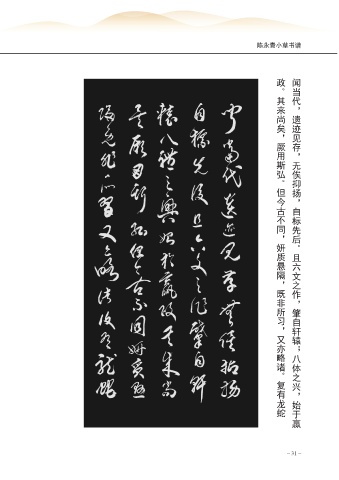 陈永贵小草书谱
闻当代，遗迹见存，无俟抑扬，自标先后。且六文之作，肇自轩辕；八体之兴，始于嬴
政。其来尚矣，厥用斯弘。但今古不同，妍质悬隔，既非所习，又亦略诸。复有龙蛇
闻当代遗迹见存无俟抑扬
自标先后且六文之作肇自轩
辕八体之兴始于嬴政其来尚
矣厥用斯弘但今古不同妍质悬
隔既非所习又亦略诸复有龙蛇
– 31 –